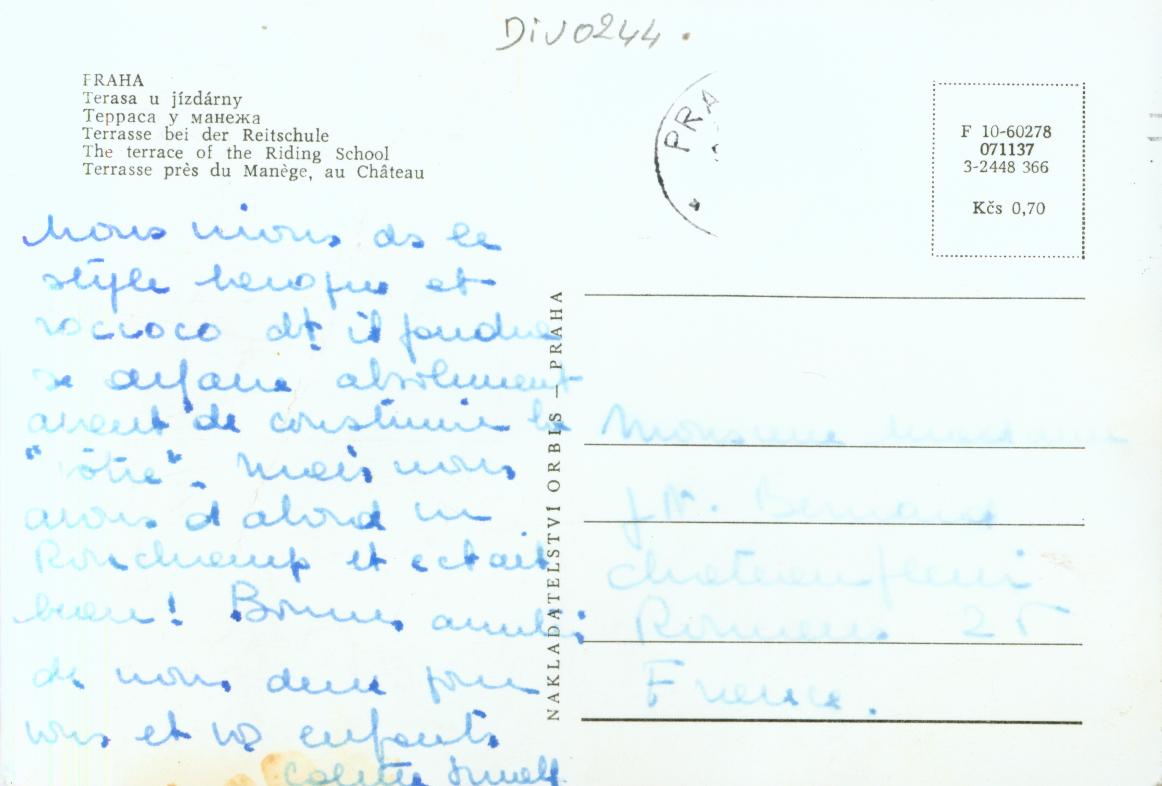 DIV0244.
PRAHA
Terasa u jízdárny
Терраса у манежа
Terrasse bei der Reitschule
The terrace of the Riding School
Terrasse près du Manège, au Château
PRA
F 10-60278
071137
3-2448 366
Kčs 0,70
NAKLADATELSTVÍ ORBIS — PRAHA
Nous vivons ds le
style baroque et
roccoco dt il faudra
se défaire absolument
avant de construire la
"vôtre". Mais nous
avons d'abord vu
Ronchamp et c'était
beau! Bonnes amitiés
de nous deux pour
vous et vos enfants
Colette
Monsieur Madame
Bernard
Chateaufleuri
Romans 26
France.